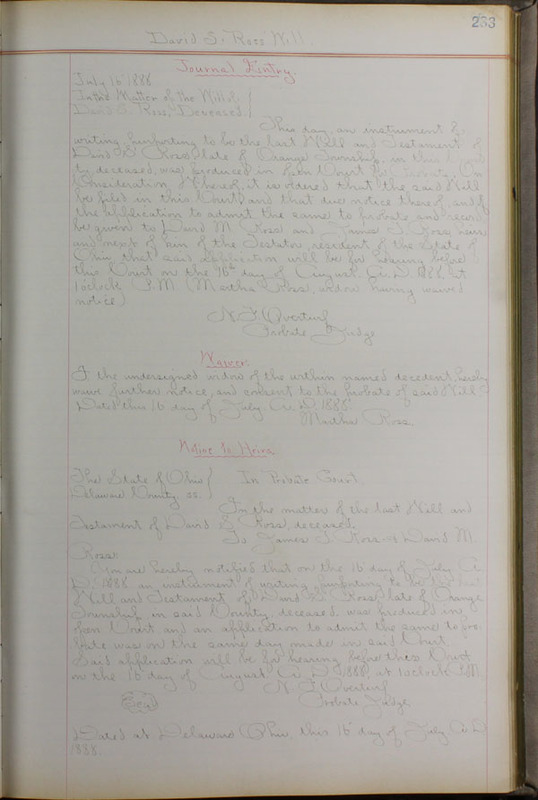 233
David S. Ross Will.
Journal Entry.
July 16 1888
In the Matter of the Will of
David S. Ross, Deceased.
This day, an instrument of
writing, purporting to be the last Will and Testament of
David S. Ross, late of Orange Township, in this
deceased, was produced in open Court for Probate. On
Consideration Whereof, it is ordered that the said Will
be filed in this Court, and that due notice thereof, and of
the application to admit the same to probate and record
be given to David M. Ross and James T. Ross, heirs
and next of kin of the Testator, resident of the State of
Ohio, that said application will be for hearing before
this Court on the 16th day of August A.D. 1888. at
1 o'clock P.M. (Martha Ross, widow having waived
notice)
N. F. Overturf
Probate Judge
Waiver.
I the undersigned widow of the within named decedent, hereby
waive further notice, and consent to the probate of said Will
Dated this 16 day of July A.D. 1888.
Martha Ross.
Notice to Heirs
The State of Ohio In Probate Court.
Delaware County, ss.
In the matter of the last Will and
Testament of David S. Ross, deceased.
To James T. Ross & David M.
Ross:
You are hereby notified that on the 16 day of July A.
D. 1888 an instrument of writing, purporting to be the last
Will and Testament of David S. Ross, late of Orange
Township in said County, deceased, was produced in
open Court and an application to admit the same to pro-
bate was on the same day made in said Court.
Said application will be for hearing before this Court
on the 16 day of August A.D. 1888, at 1 o'clock P.M.
N. F. Overturf
Probate Judge
Seal
Dated at Delaware Ohio, this 16 day of July A.D.
1888.